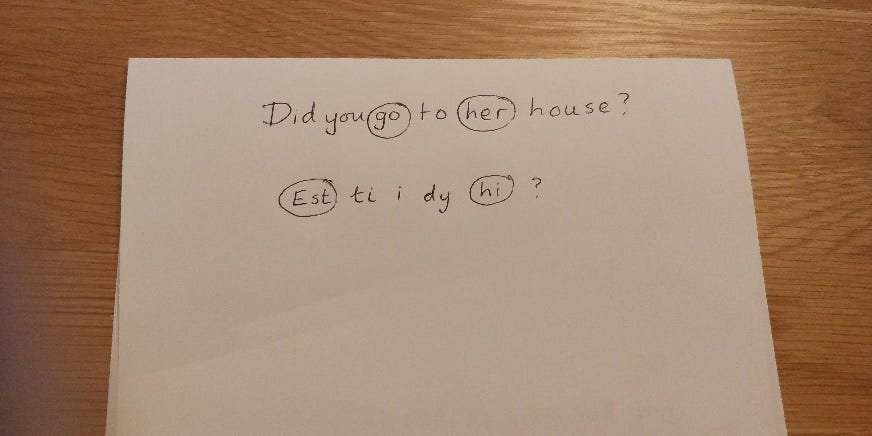 Did you go to her house?
Est ti i dy hi ?